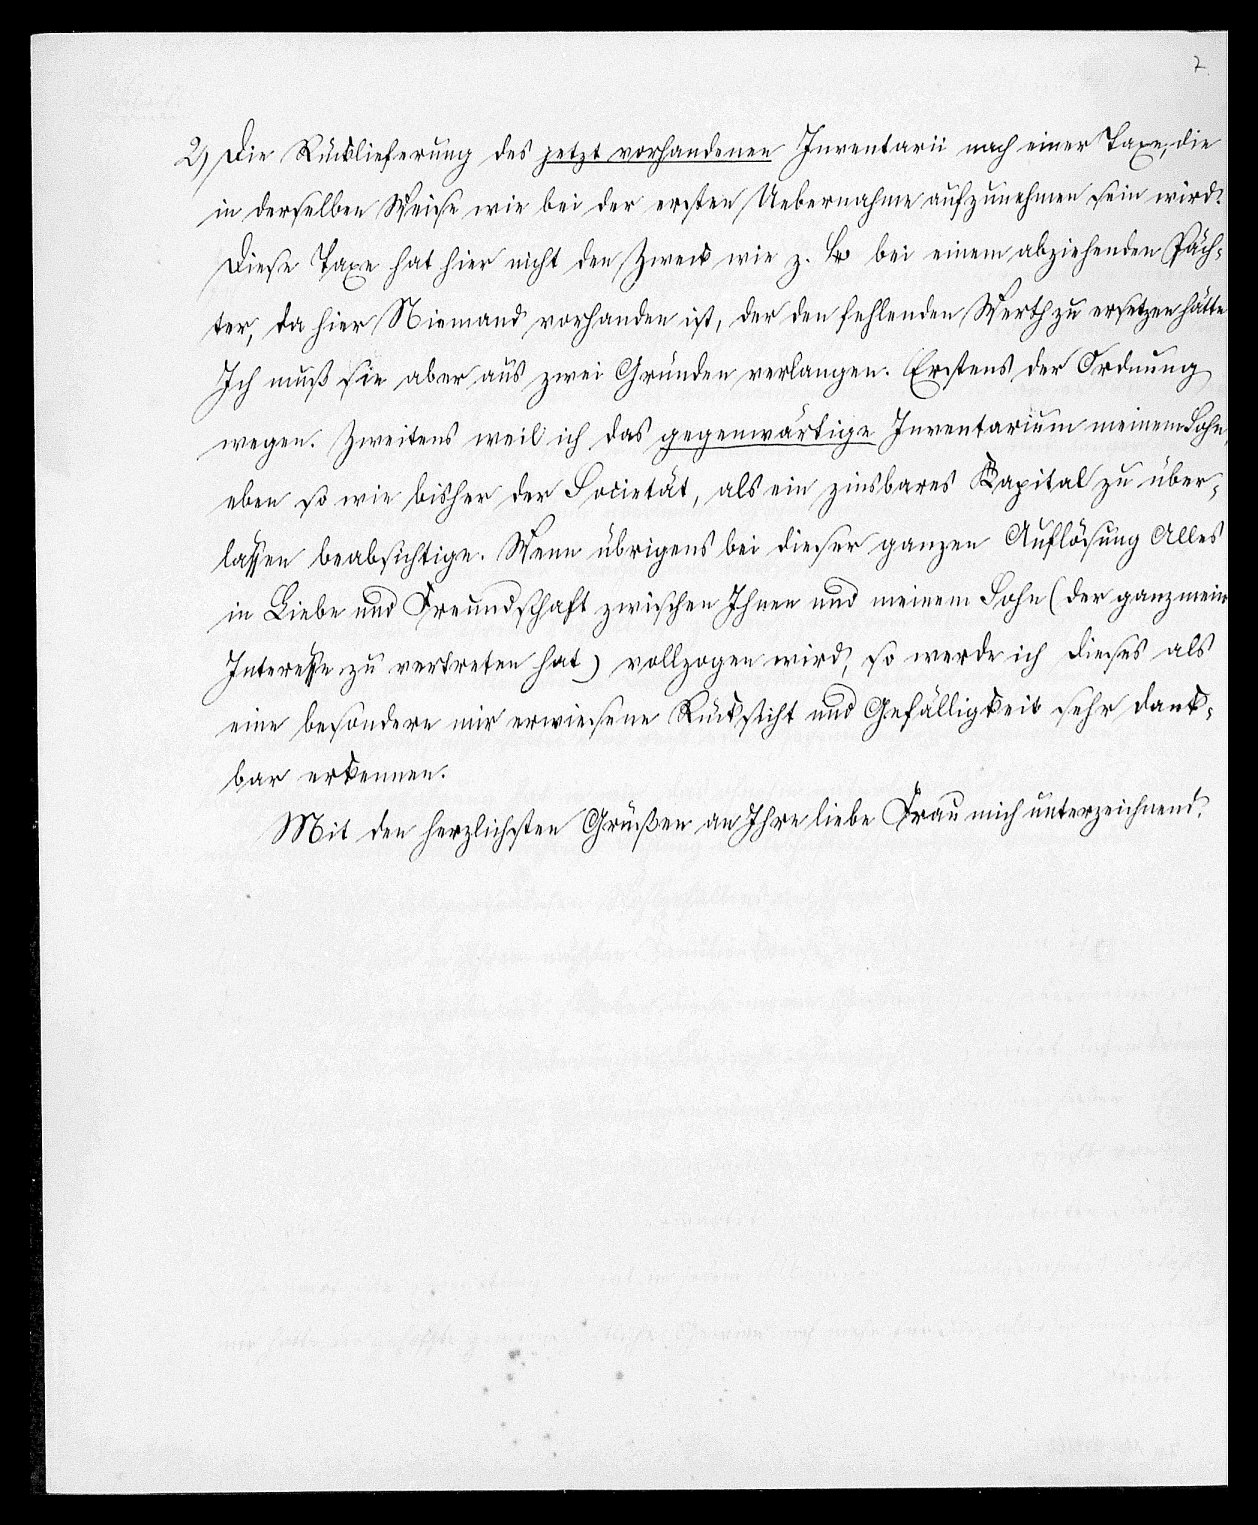 7.
2) Die Rücklieferung des jetzt vorhandenen Inventarii nach einer Taxe, die
in derselben Weise wie bei der ersten Uebernahme aufzunehmen sein wird.
Diese Taxe hat hier nicht den Zweck wie z. B. bei einem abziehenden Päch-
ter, da hier Niemand vorhanden ist, der den fehlenden Werth zu ersetzen hätte
Ich muß sie aber aus zwei Gründen verlangen. Erstens der Ordnung
wegen. Zweitens weil ich das gegenwärtige Inventarium meinem Sohn,
eben so wie bisher der Societät, als ein zinsbares Kapital zu über-
lassen beabsichtige. Wenn übrigens bei dieser ganzen Auflösung Alles
in Liebe und Freundschaft zwischen Ihnen und meinem Sohn (der ganz mein
Interesse zu vertreten hat) vollzogen wird, so werde ich dieses als
eine besondere mir erwiesene Rücksicht und Gefälligkeit sehr dank-
bar erkennen.
Mit den herzlichsten Grüßen an Ihre liebe Frau mich unterzeichnend.